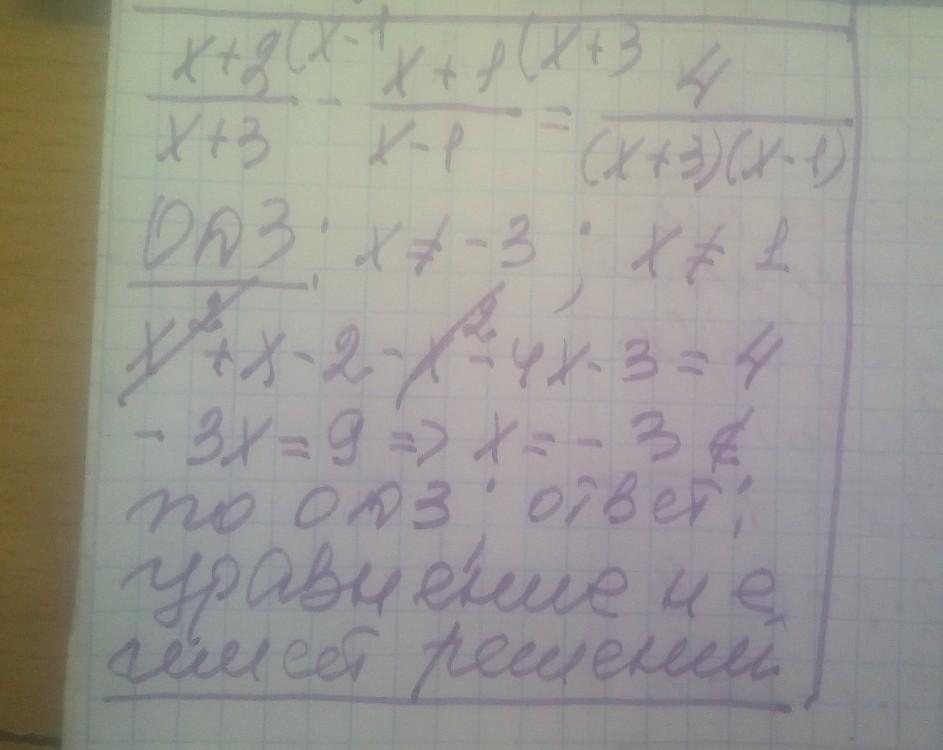 x+2(x-1 / x+3 - x+1(x+3 / x-1 = 4 / (x+3)(x-1)
ОДЗ: x≠-3; x≠1
x²+x-2-x²-4x-3=4
-3x=9 => x=-3 ∉
по ОДЗ; ответ:
уравнение не
имеет решений